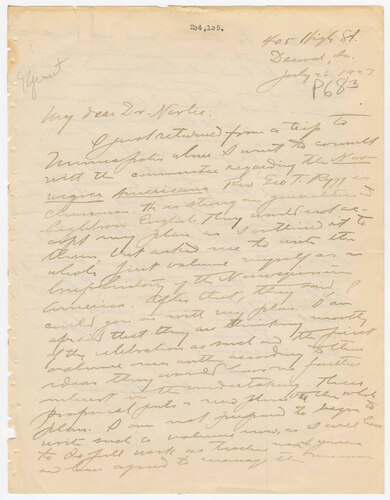 234,135.
405 High St.
Decorah, Ia.
July 26, 1923
P683
My dear Dr. Norlie:
I just returned from a trip to
Minneapolis where I went to consult
with the committee regarding the Nor-
wegian Americans. Rev. Geo T. Rygg is
chairman. He is strong in
English. They would not ac-
cept my plan as I outlined it to
them, but asked me to write the
whole first volume myself as a
history of the Norwegians in
America. After that, they said, I
could go on with my plan. I am
afraid that they are thinking mostly
of the celebration as such and the first
volume was written according to their
ideas they would have no further
interest in the undertaking. Their
proposal puts a new phase on the whole
plan. I am not prepared to begin to
write such a volume now, as I will have
to do full work as teacher next year
and have agreed to manage the museum